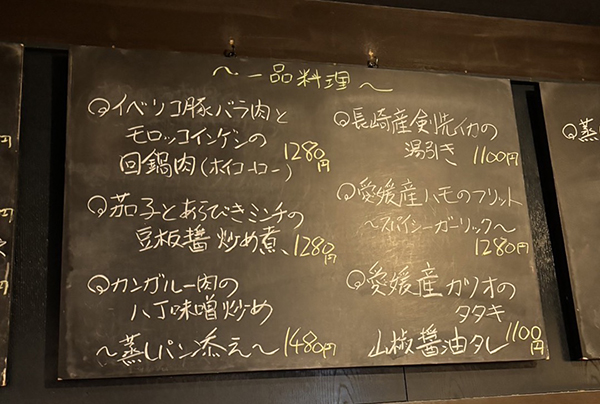 ～一品料理～
イベリコ豚バラ肉と
モロッコインゲンの
回鍋肉(ホイコーロー) 1280円
茄子とあらびきミンチの
豆板醤炒め煮、1280円
カンガルー肉の
八丁味噌炒め
～蒸しパン添え～1480円
長崎産剣先イカの
湯引き 1100円
愛媛産ハモのフリット
～スパイシーガーリック～
1280円
愛媛産カツオの
タタキ
山椒醤油タレ 1100円
蒸
円
円
円